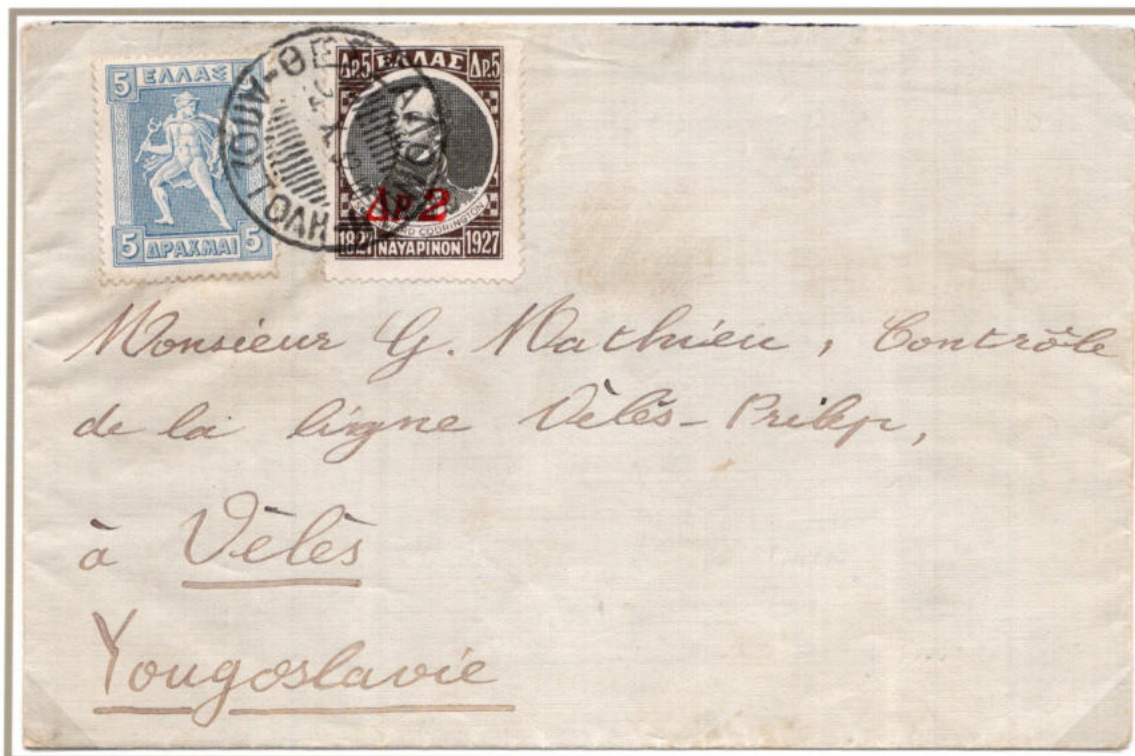 5 ΕΛΛΑΣ 5
5 ΔΡΑΧΜΑΙ 5
Δρ.5 ΕΛΛΑΣ Δρ.5
Δρ.2
CODRINGTON
1827 ΝΑΥΑΡΙΝΟΝ 1927
Monsieur G. Mathieu, Contrôle
de la ligne Vèlès-Prilep,
à Vèlès
Yougoslavie